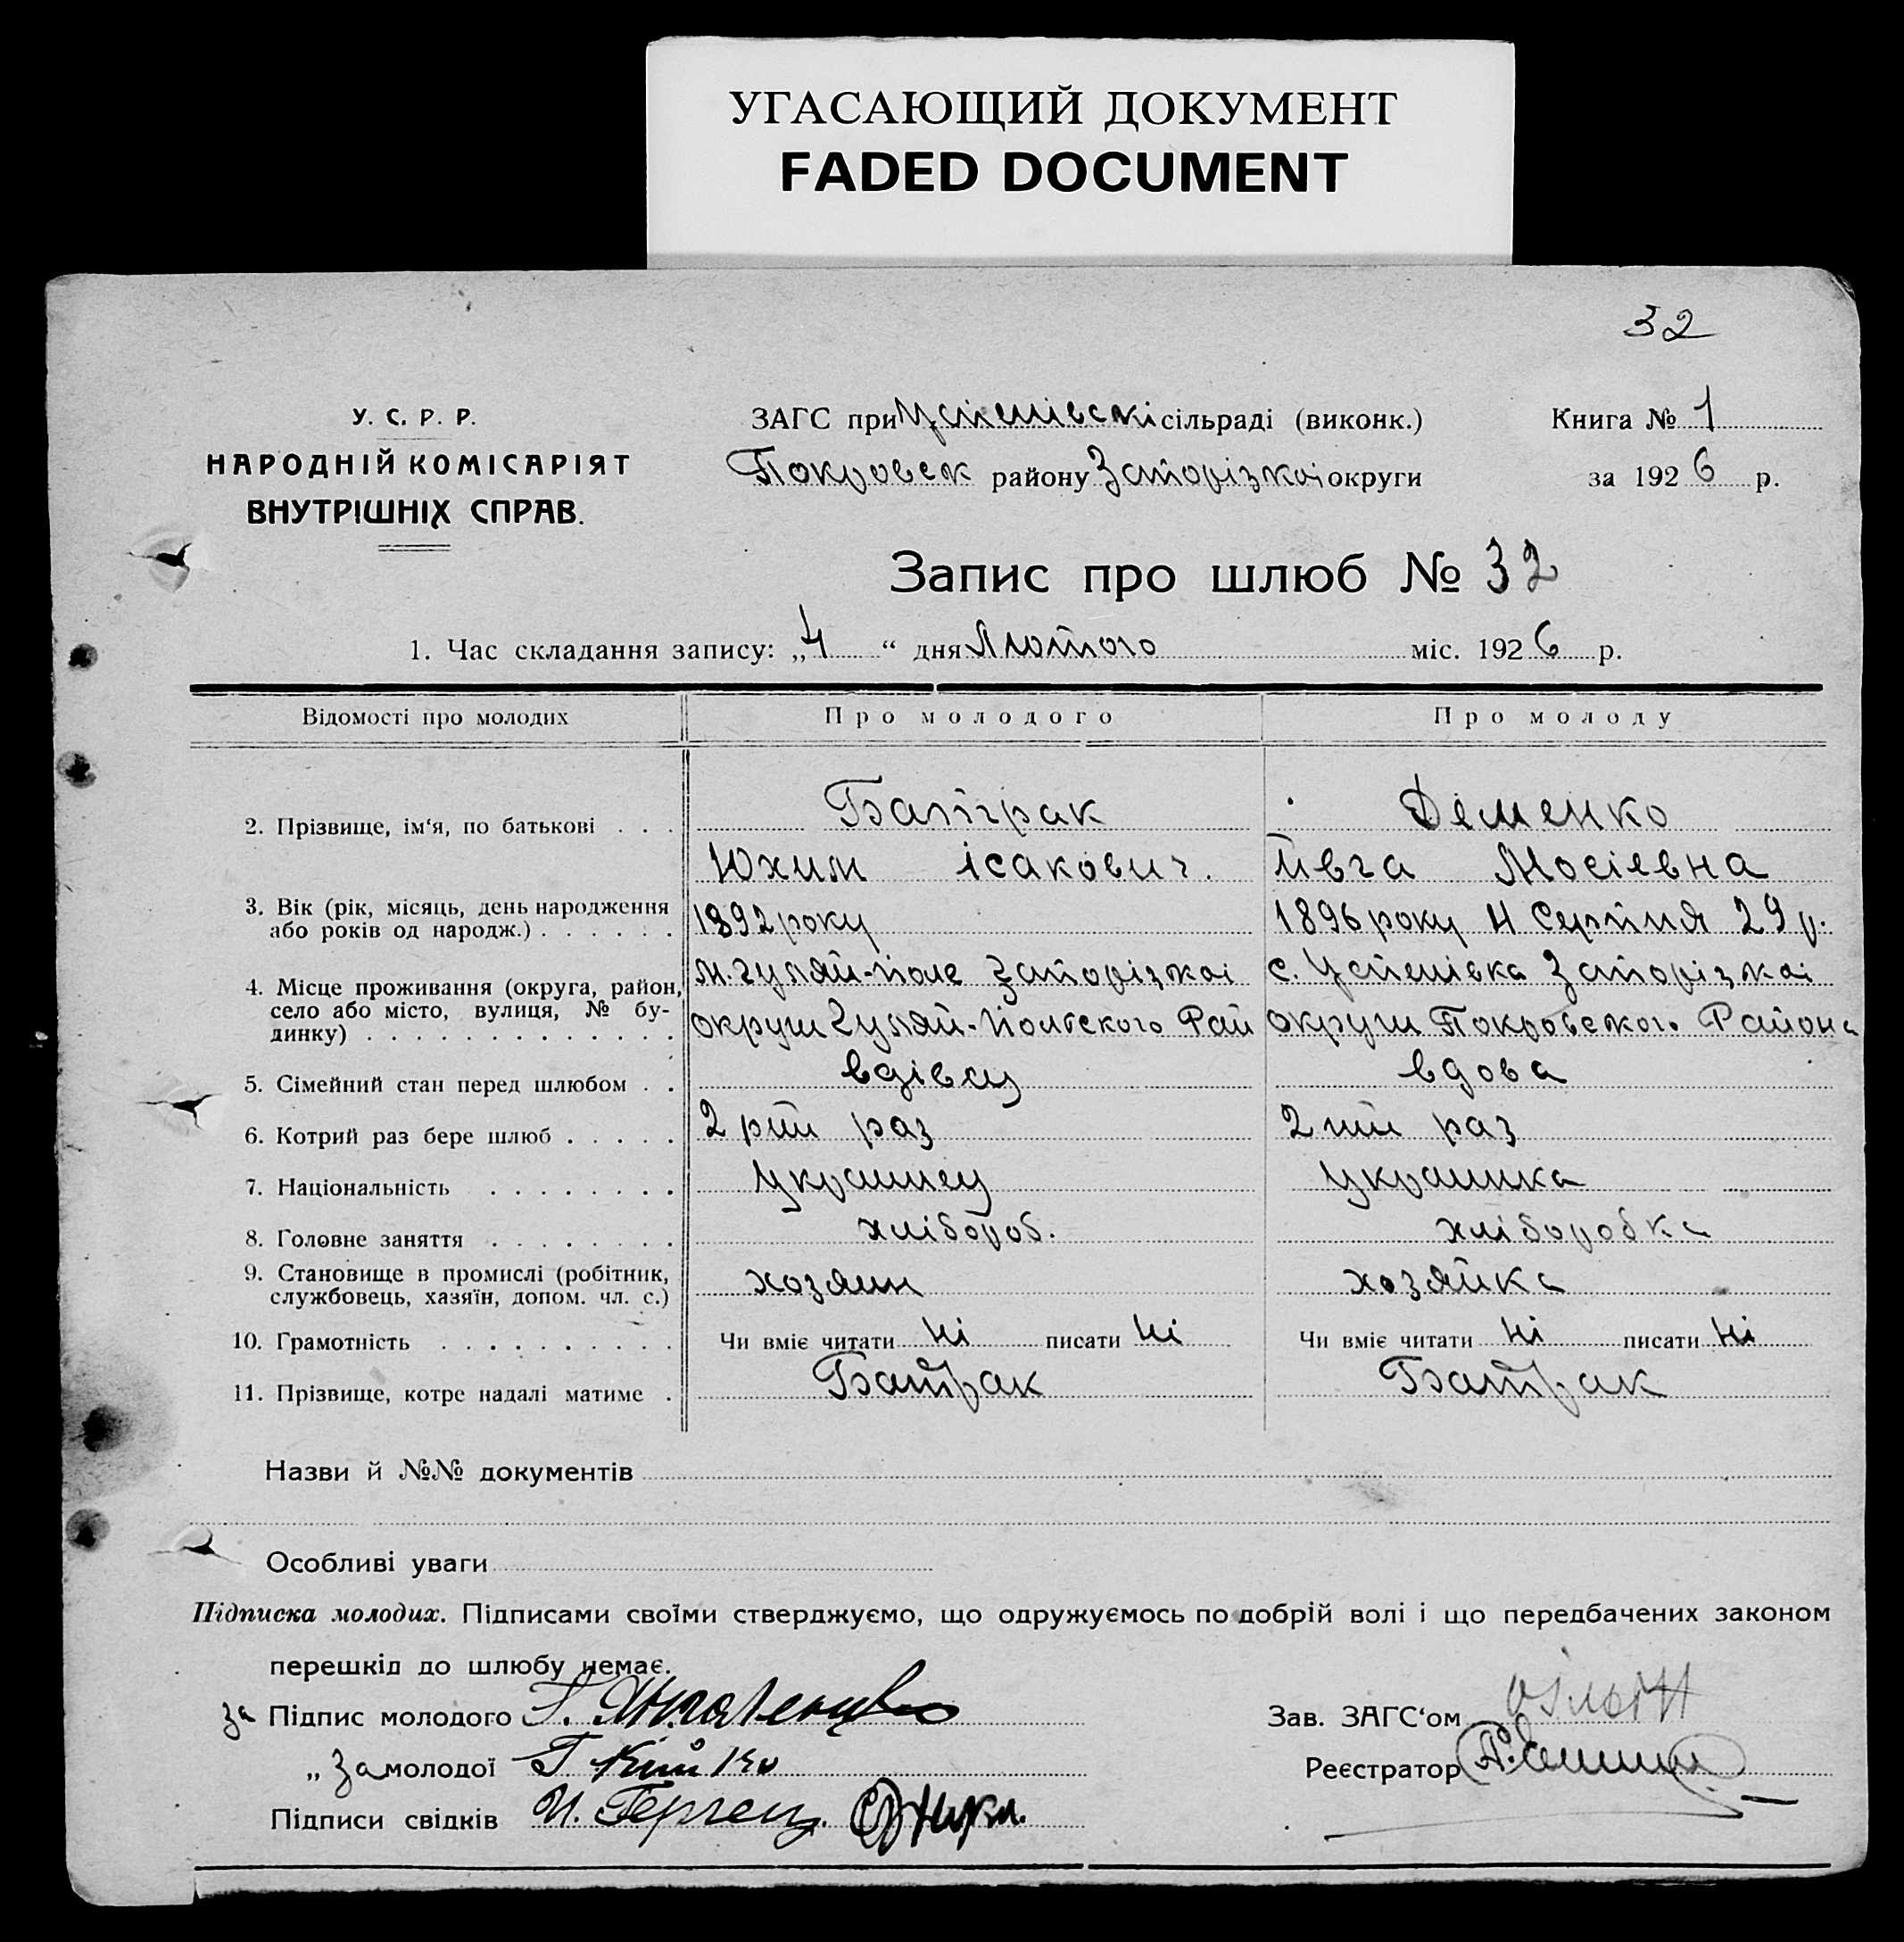 УГАСАЮЩИЙ ДОКУМЕНТ
FADED DOCUMENT
32
У. С. Р. Р.
НАРОДНІЙ КОМІСАРІЯТ
ВНУТРІШНІХ СПРАВ.
ЗАГС при Успенівскі сільраді (виконк.)
Покровск району Запорізкоі округи
Книга № 1
за 1926 р.
Запис про шлюб № 32
1. Час складання запису: „4“ дня Лютого міс. 1926 р.
Відомості про молодих Про молодого Про молоду
2. Прізвище, ім‘я, по батькові . . . Батрак Деменко
Юхим Ісакович. Ивга Мосіевна
3. Вік (рік, місяць, день народження
або років од народж.) . . . . . . 1892 року 1896 року 4 Серпня 29 р.
4. Місце проживання (округа, район, м. Гуляй-Поле Запорізкоі с. Успенівка Запорізкоі
село або місто, вулиця, № бу-
динку) . . . . . . . . . . . . . округи Гуляй-Польского Рай округи Покровского Района
5. Сімейний стан перед шлюбом . . вдівец вдова
6. Котрий раз бере шлюб . . . . . 2рий раз 2гий раз
7. Національність . . . . . . . . Украинец Украинка
8. Головне заняття . . . . . . . . хлібороб. хліборобка
9. Становище в промислі (робітник,
службовець, хазяїн, допом. чл. с.) хозяин хозяйка
10. Грамотність . . . . . . . . . . Чи вміє читати ні писати ні Чи вміє читати ні писати ні
11. Прізвище, котре надалі матиме . Батрак Батрак
Назви й №№ документів
Особливі уваги
Підписка молодих. Підписами своїми стверджуємо, що одружуємось по добрій волі і що передбачених законом
перешкід до шлюбу немає.
за Підпис молодого
„ За молодої
Підписи свідків
Зав. ЗАГС‘ом
Реєстратор